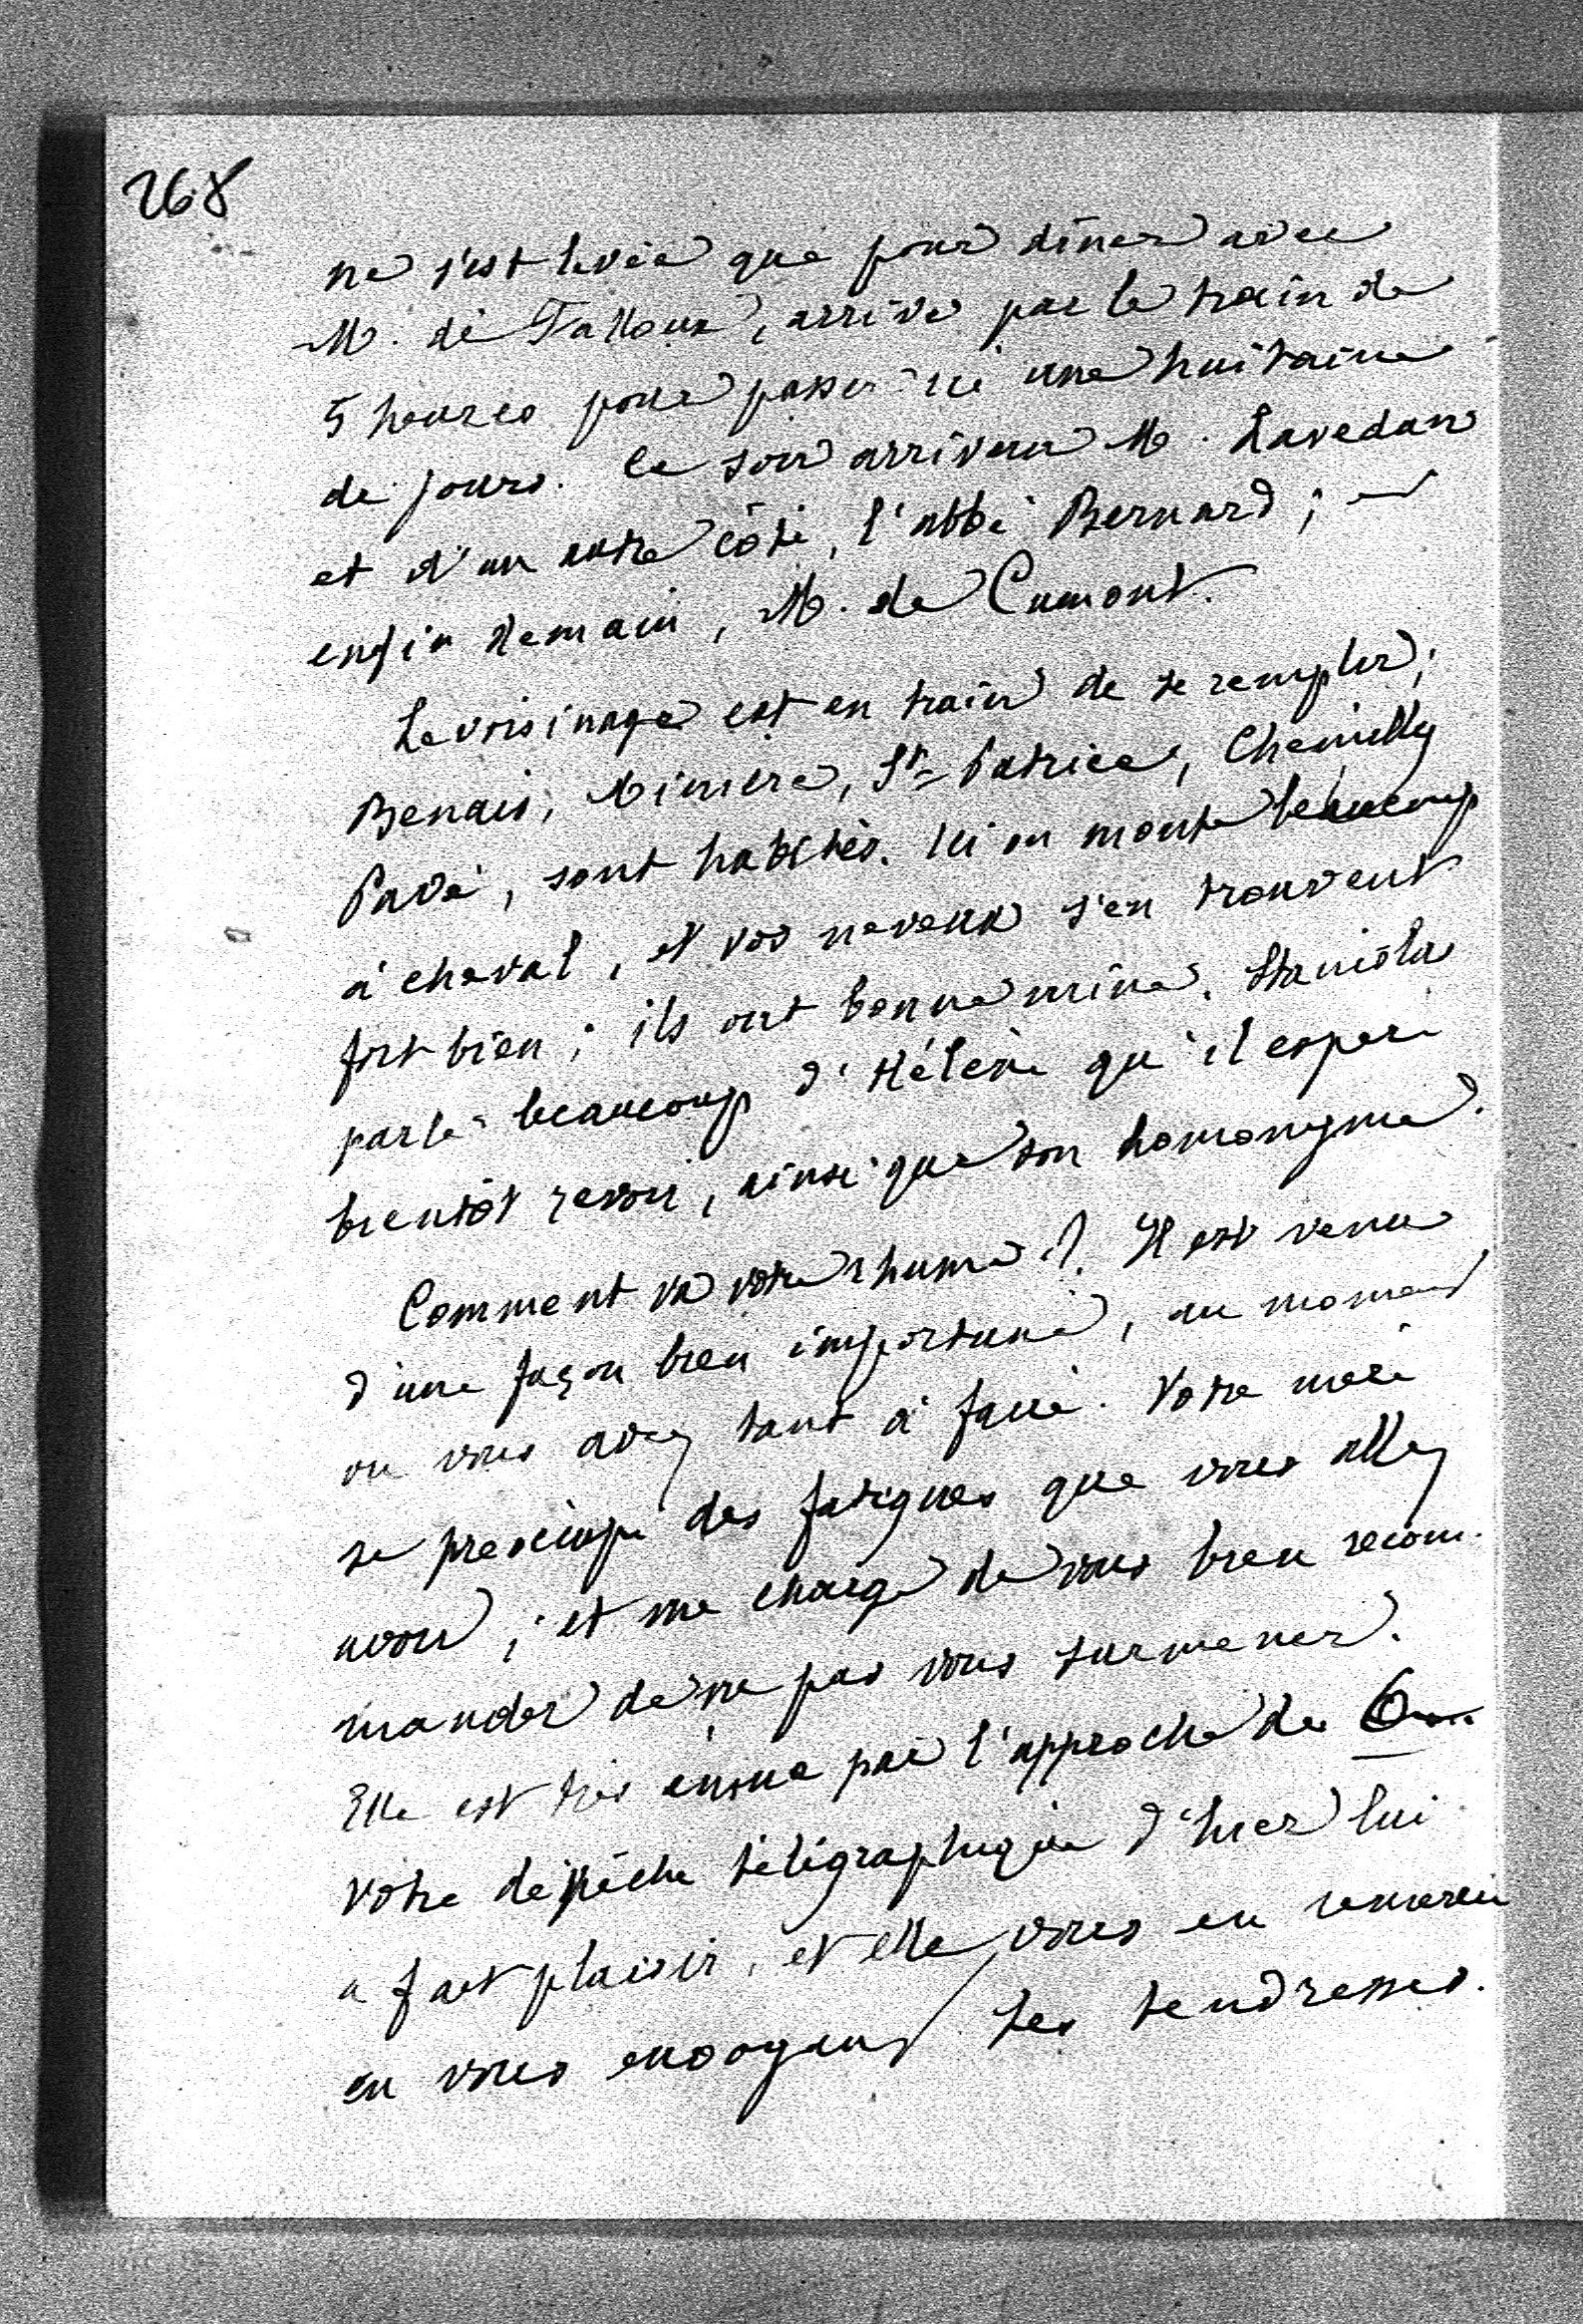 268
ne s'est levée que pour dîner avec
M. de Falloux, arrivé par le train de
5 heures pour passer ici une huitaine
de jours. Ce soir arrivera M. Lavedan
et d'un autre côté, l'abbé Bernard ; —
enfin demain, M. de Cumont.
Le voisinage est en train de se remplir ;
Benais, Minière, St-Patrice, Chemilly
Pavé, sont habités. Ici on monte beaucoup
à cheval, et vos neveux s'en trouvent
fort bien ; ils ont bonne mine. Stanislas
parle beaucoup d'Hélène qu'il espère
bientôt revoir, ainsi que son homonyme.
Comment va votre rhume ? Il est venu
d'une façon bien importune, au moment
où vous avez tant à faire. Votre mère
se préoccupe des fatigues que vous allez
avoir ; et me charge de vous bien recom-
mander de ne pas vous surmener.
Elle est très émue par l'approche du 6
votre dépêche télégraphique d'hier lui
a fait plaisir, et elle vous en remercie
en vous envoyant ses tendresses.